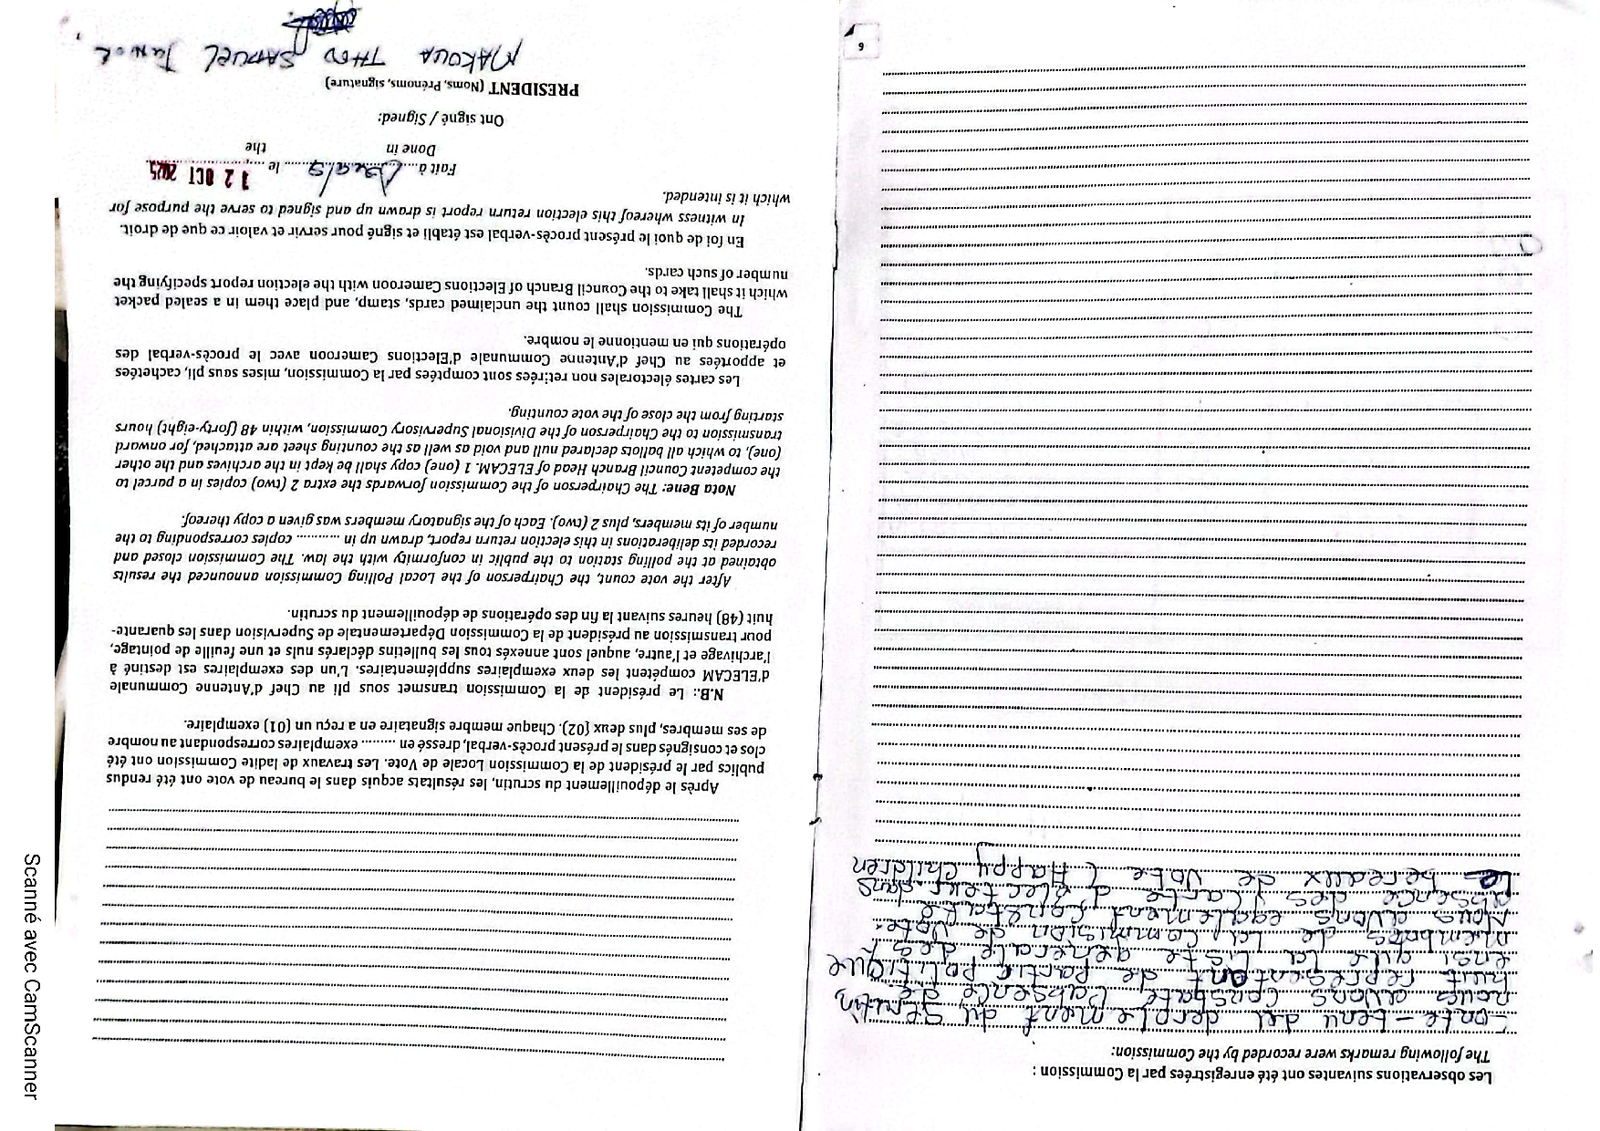 Les observations suivantes ont été enregistrées par la Commission :
The following remarks were recorded by the Commission:
conte-tenu del deroplement du scrutin
nous avons constaté l'absence de
huit representant de Partie politique
ensi que la Liste generale des
membres de la commission de vote.
Nous avons egalement constaté
absence des carte d'electeur dans
bereaux de vote ( Happy children
6
Après le dépouillement du scrutin, les résultats acquis dans le bureau de vote ont été rendus
publics par le président de la Commission Locale de Vote. Les travaux de ladite Commission ont été
clos et consignés dans le présent procès-verbal, dressé en ......... exemplaires correspondant au nombre
de ses membres, plus deux (02). Chaque membre signataire en a reçu un (01) exemplaire.
N.B.: Le président de la Commission transmet sous pli au Chef d'Antenne Communale
d'ELECAM compétent les deux exemplaires supplémentaires. L'un des exemplaires est destiné à
l'archivage et l'autre, auquel sont annexés tous les bulletins déclarés nuls et une feuille de pointage,
pour transmission au président de la Commission Départementale de Supervision dans les quarante-
huit (48) heures suivant la fin des opérations de dépouillement du scrutin.
After the vote count, the Chairperson of the Local Polling Commission announced the results
obtained at the polling station to the public in conformity with the law. The Commission closed and
recorded its deliberations in this election return report, drawn up in ........... copies corresponding to the
number of its members, plus 2 (two). Each of the signatory members was given a copy thereof.
Nota Bene: The Chairperson of the Commission forwards the extra 2 (two) copies in a parcel to
the competent Council Branch Head of ELECAM. 1 (one) copy shall be kept in the archives and the other
(one), to which all ballots declared null and void as well as the counting sheet are attached, for onward
transmission to the Chairperson of the Divisional Supervisory Commission, within 48 (forty-eight) hours
starting from the close of the vote counting.
Les cartes électorales non retirées sont comptées par la Commission, mises sous pli, cachetées
et apportées au Chef d'Antenne Communale d'Elections Cameroon avec le procès-verbal des
opérations qui en mentionne le nombre.
The Commission shall count the unclaimed cards, stamp, and place them in a sealed packet
which it shall take to the Council Branch of Elections Cameroon with the election report specifying the
number of such cards.
En foi de quoi le présent procès-verbal est établi et signé pour servir et valoir ce que de droit.
In witness whereof this election return report is drawn up and signed to serve the purpose for
which it is intended.
Fait à Douala le 12 OCT 2025
Done in the
Ont signé / Signed:
PRESIDENT (Noms, Prénoms, signature)
MAKOUA THEO SAMUEL
Scanné avec CamScanner